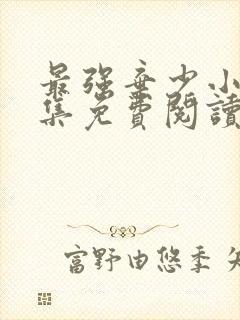 最强弃少小
集免费阅读
富野由悠季 矢